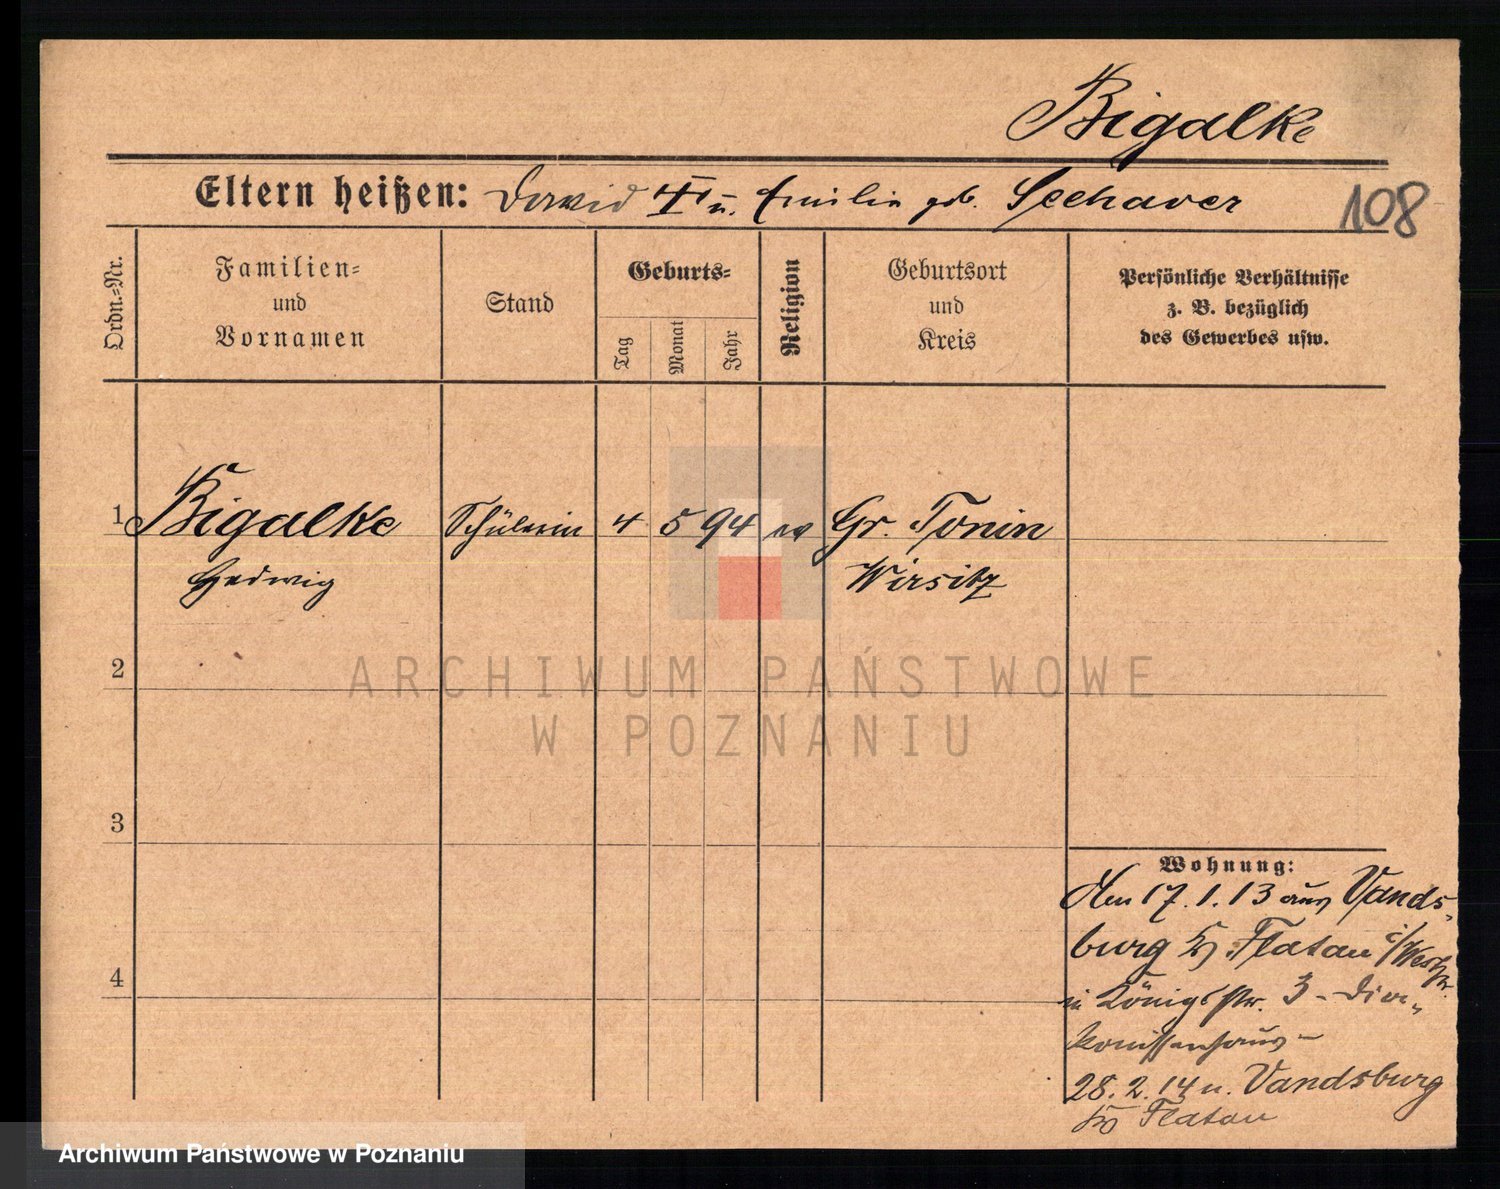 Bigalke
Eltern heißen: David II u. Emilie geb. Seehaver
108
Ordn.-Nr.
Familien-
und
Vornamen
Stand
Geburts-
Tag
Monat
Jahr
Religion
Geburtsort
und
Kreis
Persönliche Verhältnisse
z. B. bezüglich
des Gewerbes usw.
1 Bigalke Schülerin 4 5 94 ev Gr. Tonin
Hedwig Wirsitz
2
ARCHIWUM PAŃSTWOWE
W POZNANIU
3
Wohnung:
Am 17.1.13 aus Vands-
burg Kr. Flatau i/Westpr.
in Königstr. 3 - Dia-
konissenhaus -
4
28.2.14 n. Vandsburg
Kr Flatau
Archiwum Państwowe w Poznaniu